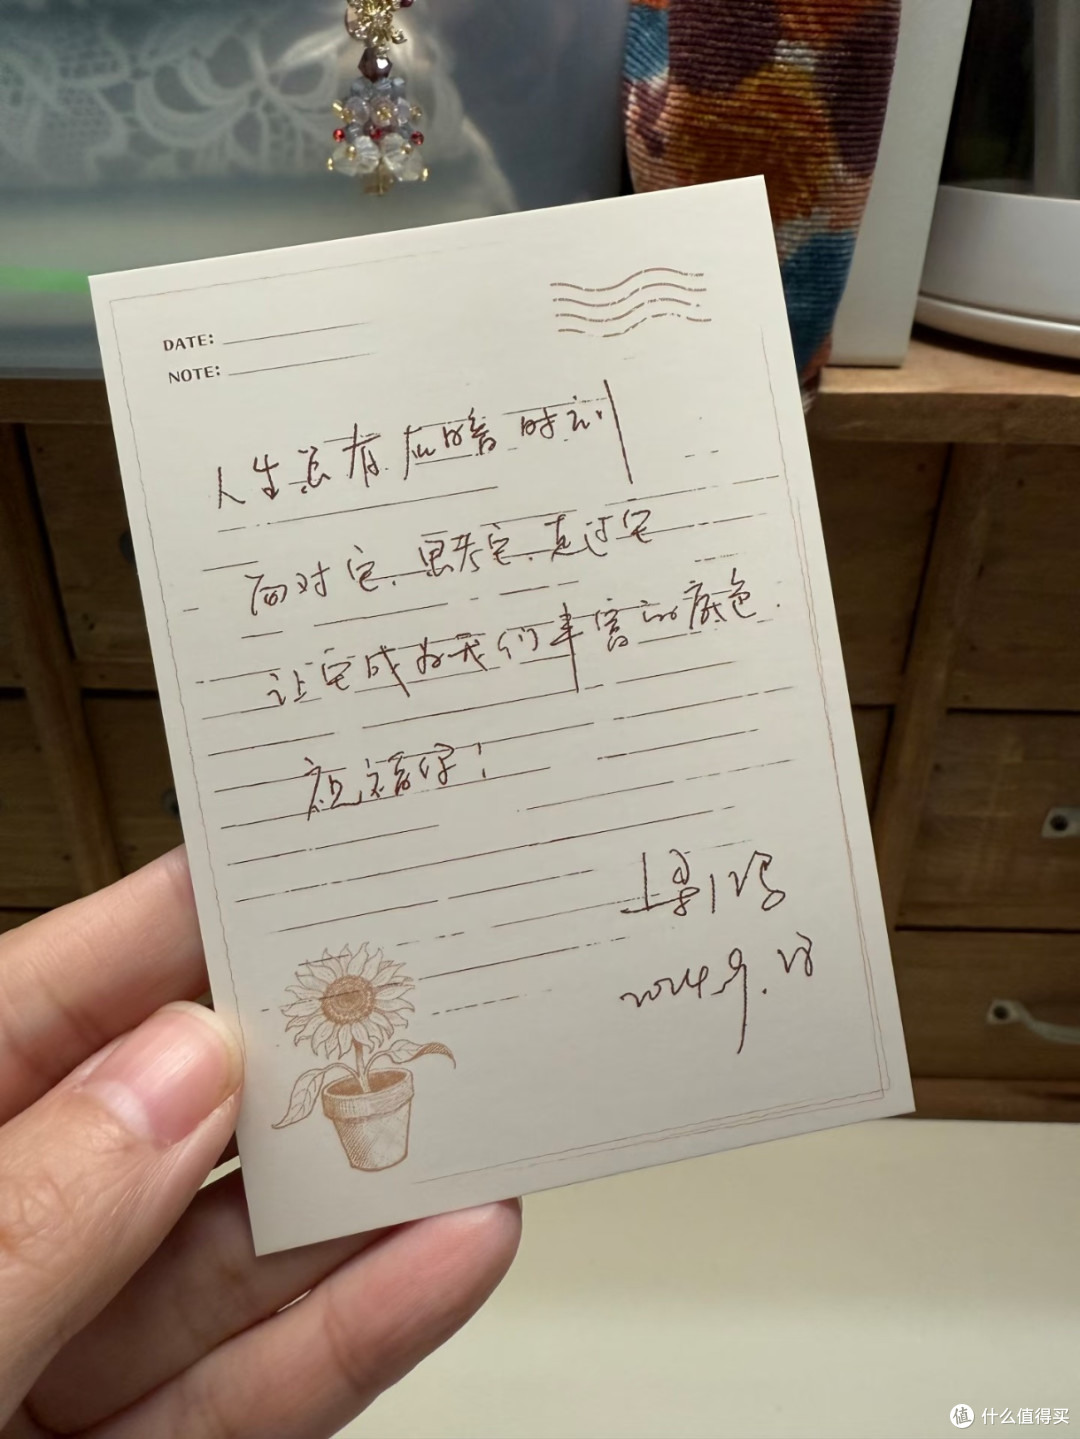 DATE:
NOTE:
人生总有应暗时刻
面对它、思考它、走过它
让它成为我们丰富的底色.
祝福你!
2024.9.28
值 什么值得买